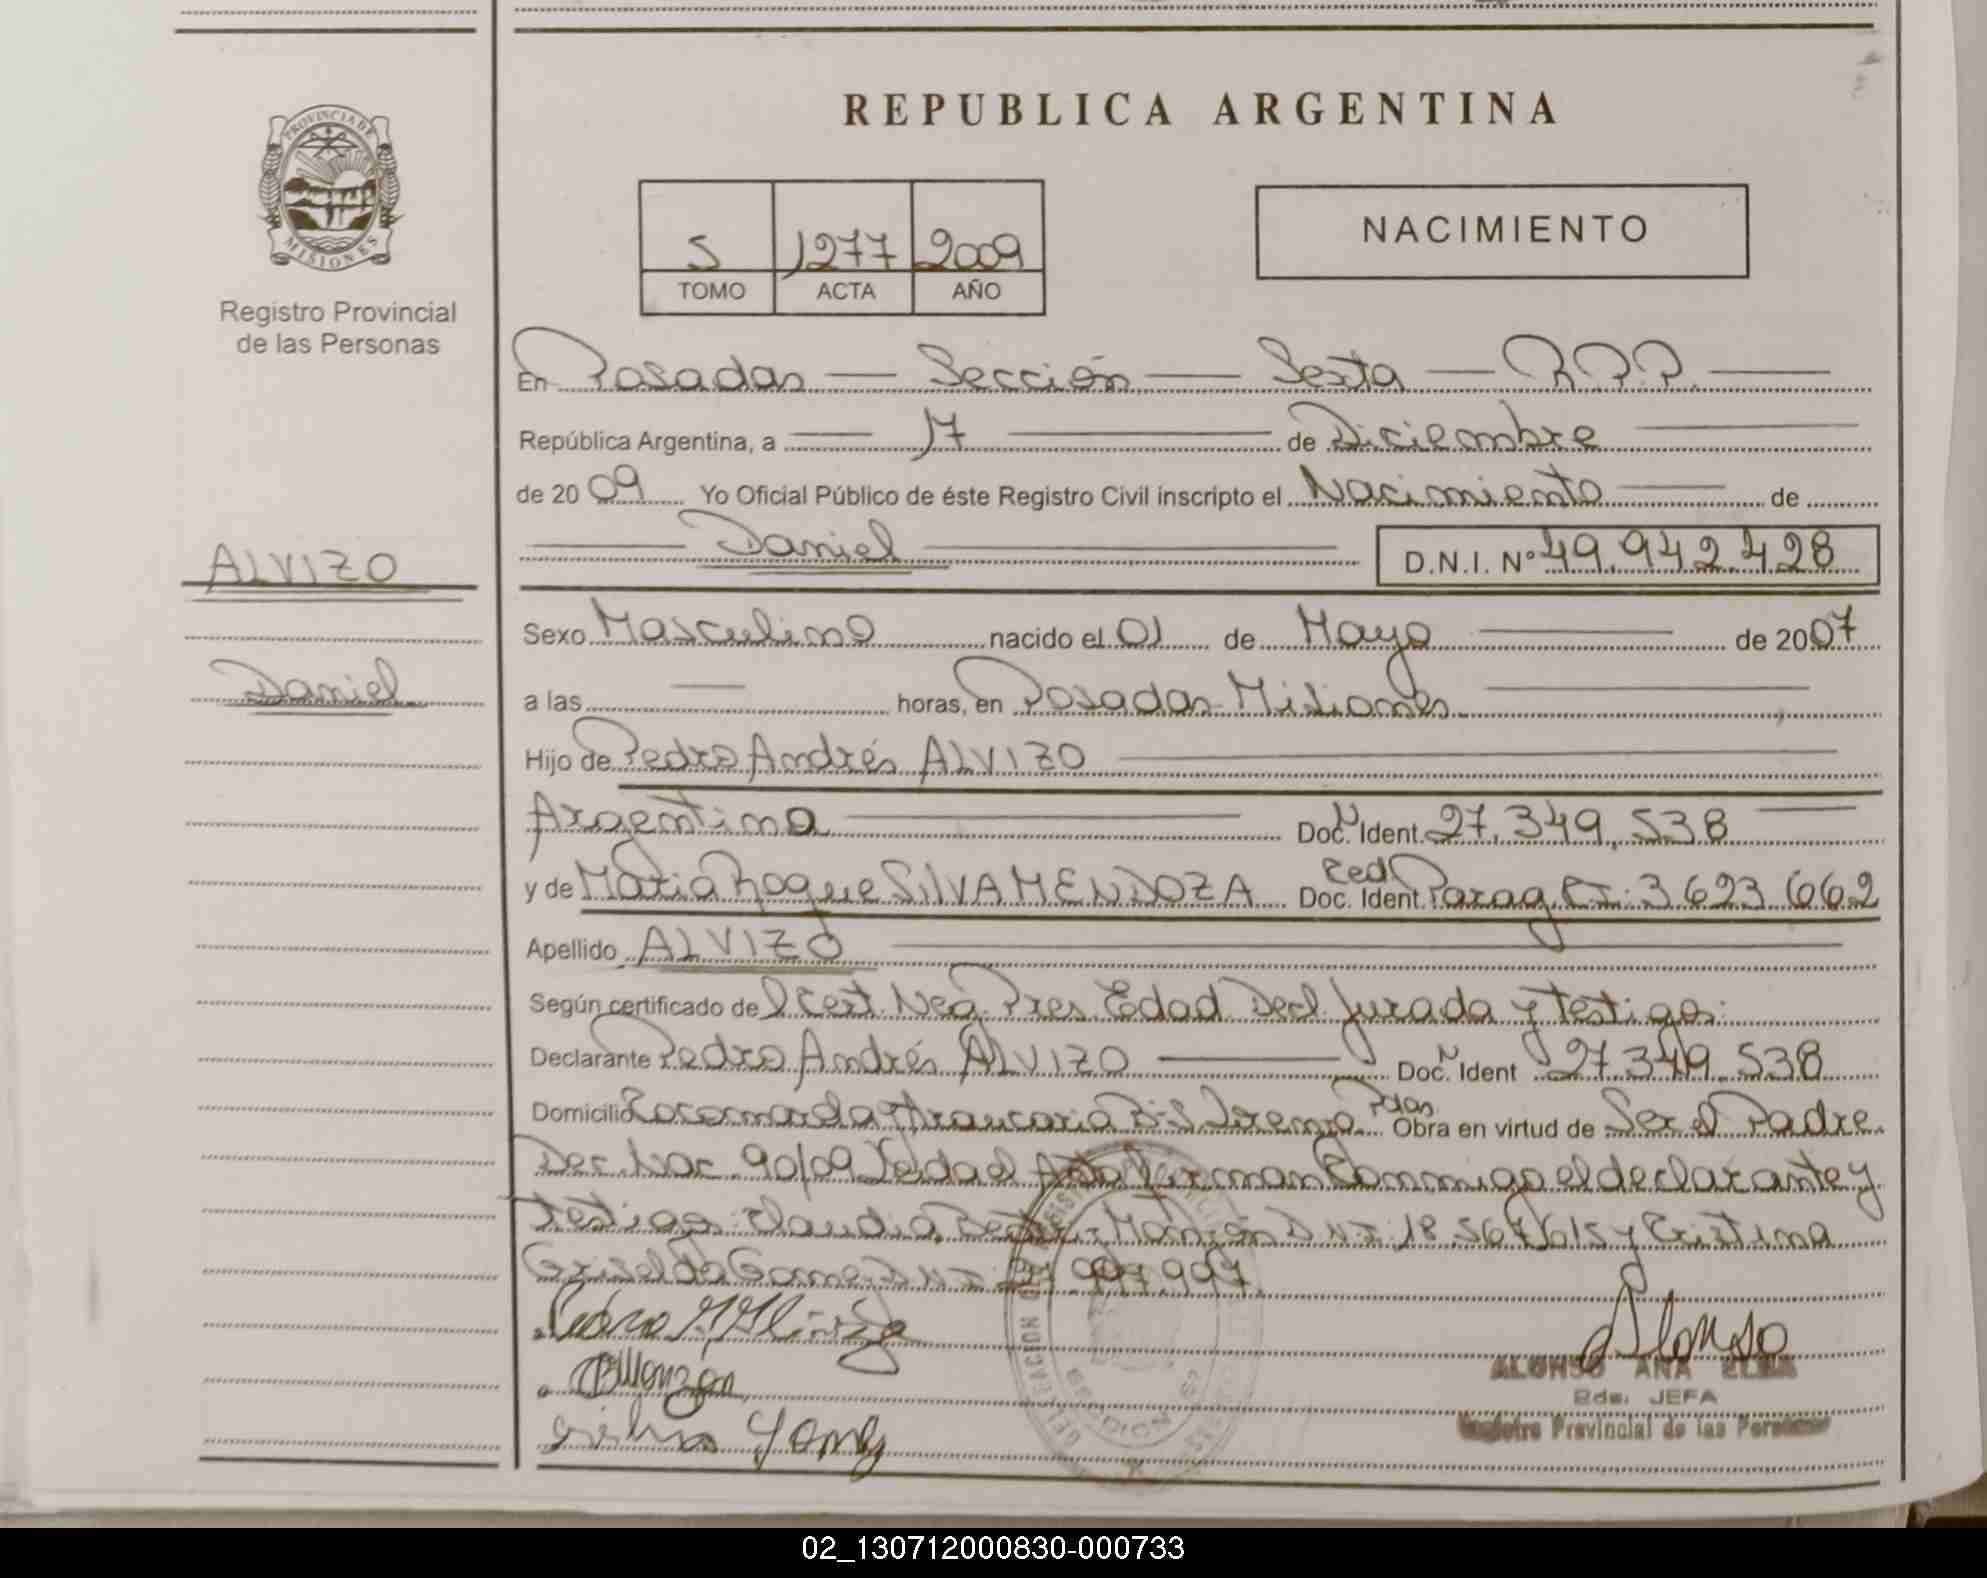 REPUBLICA ARGENTINA
PROVINCIA DE
MISIONES
Registro Provincial
de las Personas
5 1277 2009
TOMO ACTA AÑO
NACIMIENTO
En Posadas — Sección — Sexta — R.P.P. —
República Argentina, a — 17 — de Diciembre —
de 2009 Yo Oficial Público de éste Registro Civil inscripto el Nacimiento — de
— Daniel — D.N.I. Nº 49.942.428
ALVIZO
Daniel
Sexo Masculino nacido el 01 de Mayo — de 2007
a las — horas, en Posadas Misiones —
Hijo de Pedro Andrés ALVIZO —
Argentina — Doc. Ident. 27.349.538 —
y de Maria Roque SILVA MENDOZA Doc. Ident. Ced Parag. 3 623 662
Apellido ALVIZO —
Según certificado de l Cert. Neg. Pres. Edad Decl. Jurada y testigos
Declarante Pedro Andrés ALVIZO — Doc. Ident 27.349.538
Domicilio Araucaria Pdas Obra en virtud de Ser el Padre
Dec. Nac. 90/09 Leída el Acta firman Conmigo el declarante y
testigos: Claudia y Cristina
997.997
Alonso
ALONSO ANA ELBA
Rde. JEFA
Registro Provincial de las Personas
02_130712000830-000733